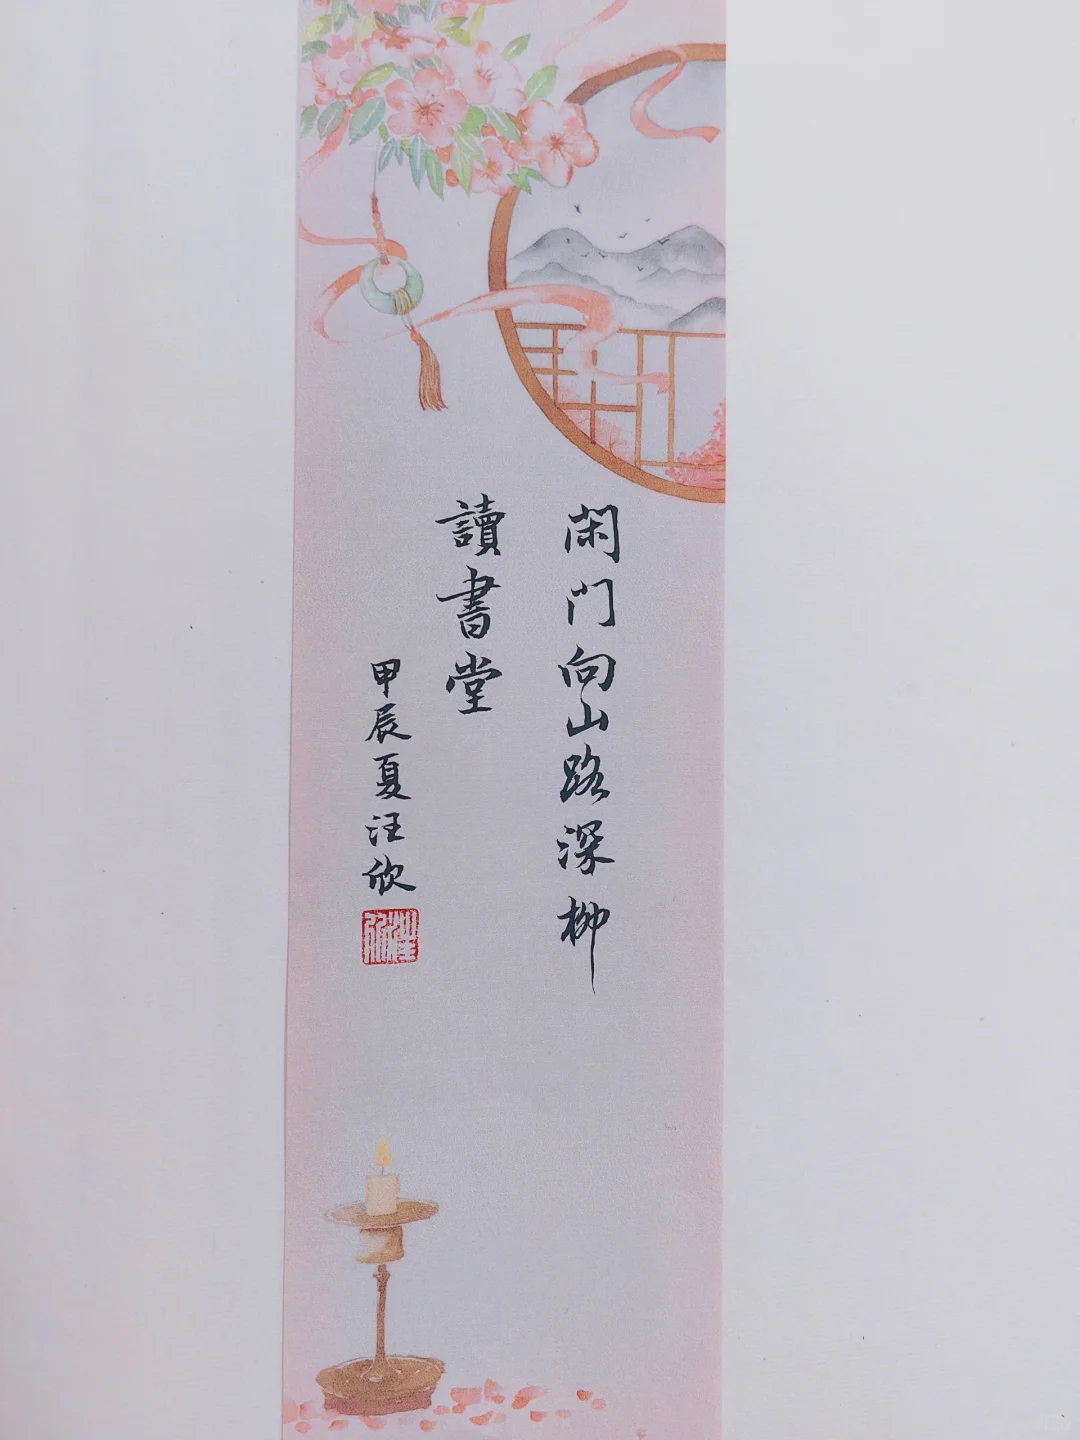 閑门向山路深柳
讀書堂
甲辰夏汪欣